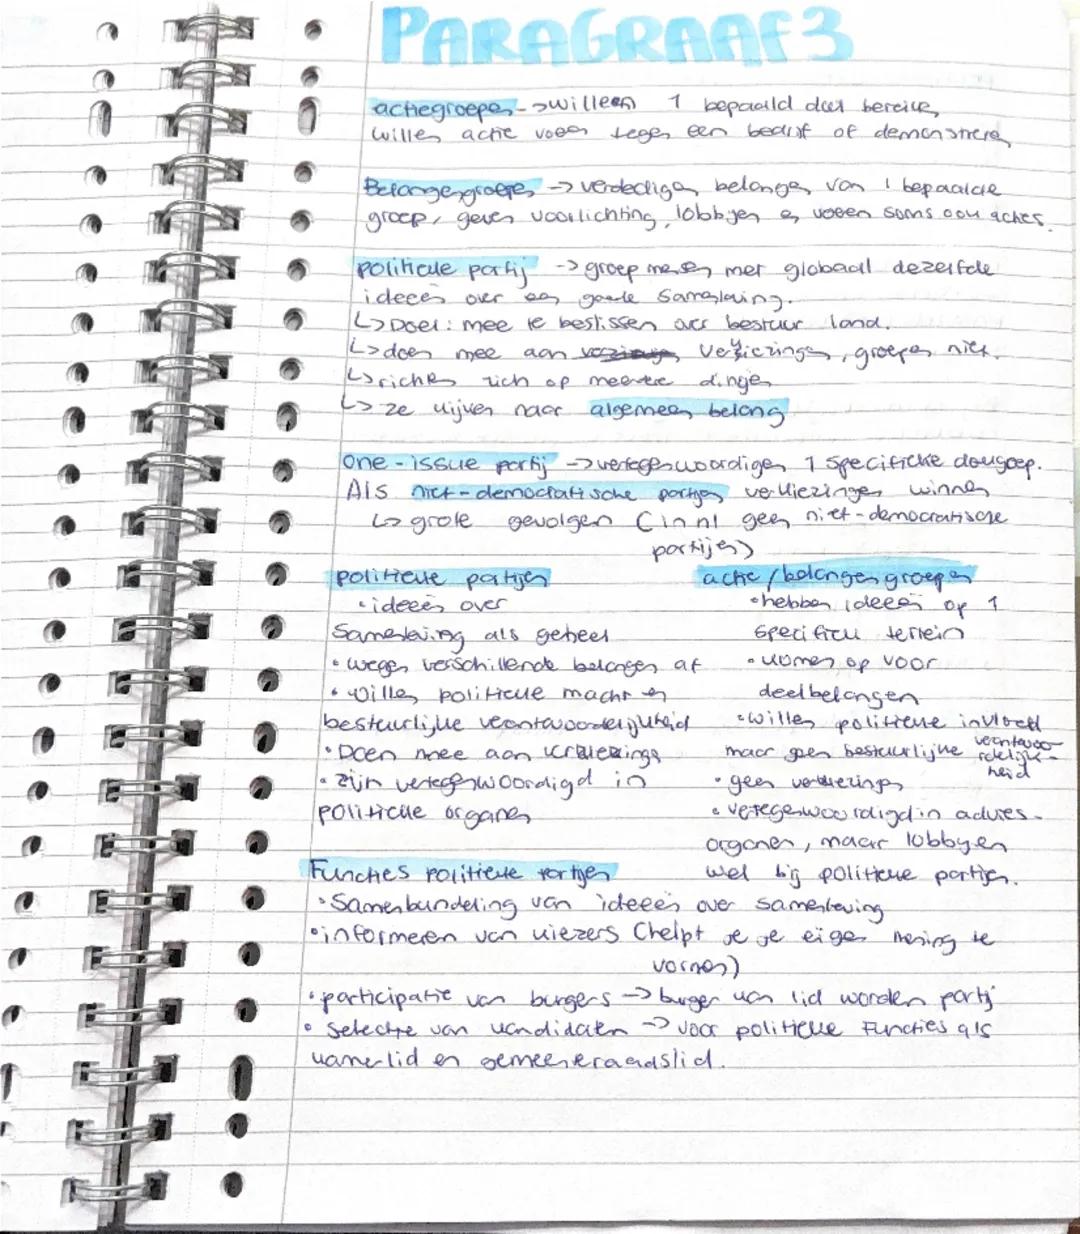 PARAGRAAF 3
actiegroepen -> willen 1 bepaald doel bereiken,
willen actie voeren tegen een bedrijf of demonstreren
Belangengroepen -> verdedigen belangen van 1 bepaalde
groep, geven voorlichting, lobbyen en voeren soms ook acties.
politieke partij -> groep mensen met globaal dezelfde
ideeën over een goede samenleving.
↳ Doel: mee te beslissen over bestuur land.
↳ doen mee aan verkiezingen, groepen niet.
↳ richten zich op meerdere dingen
↳ ze kijken naar algemeen belang
One-issue partij -> vertegenwoordigen 1 specifieke doelgroep.
Als niet-democratische partijen verkiezingen winnen
↳ grote gevolgen (in nl geen niet-democratische
partijen)
politieke partijen
• ideeën over
samenleving als geheel
• wegen verschillende belangen af
• willen politieke macht en
bestuurlijke verantwoordelijkheid
• Doen mee aan verkiezingen
• zijn vertegenwoordigd in
politieke organen
actie/belangengroepen
• hebben ideeën op 1
specifiek terrein
• komen op voor
deelbelangen
• willen politieke invloed
maar geen bestuurlijke verantwoordelijkheid
• geen verkiezingen
• vertegenwoordigd in advies-
organen, maar lobbyen
wel bij politieke partijen.
Functies politieke partijen
• Samenbundeling van ideeën over samenleving
• informeren van kiezers (helpt je je eigen mening te
vormen)
• participatie van burgers -> burger kan lid worden partij
• selectie van kandidaten -> voor politieke functies als
kamerlid en gemeenteraadslid.